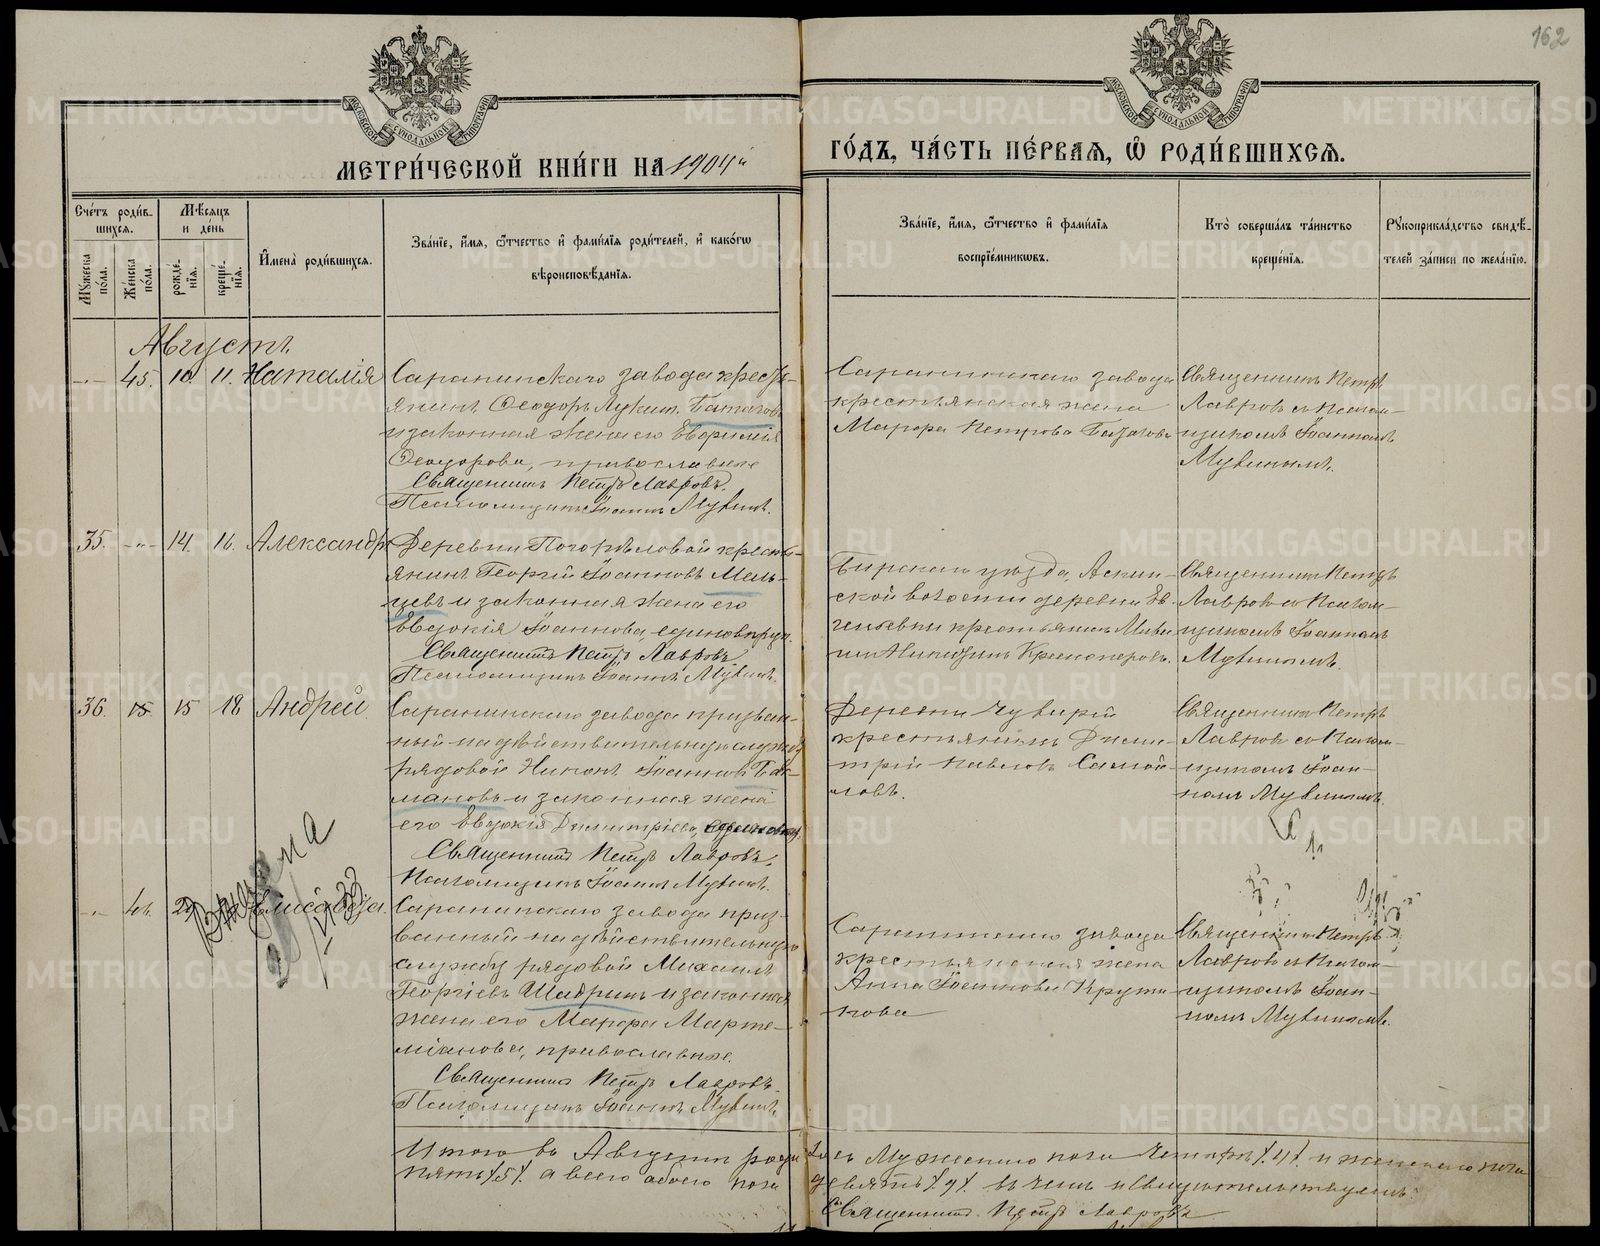 162
МЕТРИ́ЧЕСКОЙ КНИ́ГИ НА 1904й ГО́ДЪ, ЧА́СТЬ ПЕ́РВАЯ, Ѡ РОДИ́ВШИХСЯ.
Сче́тъ роди́в-
шихся.
Мꙋжеска по́ла.
Же́нска по́ла.
Мѣ́сяцъ
и де́нь
рожде́-
нїя.
креще́-
нїя.
И҆мена̀ роди́вшихся.
Зва́нїе, и҆́мя, ѻ҆́тчество и҆ фами́лїя роди́телей, и҆ како́гѡ
вѣроисповѣ́данїя.
Зва́нїе, и҆́мя, ѻ҆́тчество и҆ фами́лїя
воспрїе́мникѡвъ.
Кто̀ соверша́лъ та́инство
креще́нїя.
Рꙋкоприкла́дство свидѣ́-
телей за́писи по жела́нїю.
Августъ
-"- 45. 10. 11. Наталія
Саранинскаго завода кресть-
янинъ Ѳеодоръ Лукинъ Батаговъ
и законная жена его Евфимія
Ѳеодорова, православные
Священникъ Петръ Лавровъ.
Псаломщикъ Іоаннъ Мувинъ.
Саранинскаго завода
крестьянская жена
Марѳа Петрова Батагова
Священникъ Петръ
Лавровъ съ псалом-
щикомъ Іоанномъ
Мувинымъ.
35. -"- 14. 16. Александръ
Деревни Погорѣловой кресть-
янинъ Георгій Іоанновъ Маль-
цевъ и законная жена его
Евдокія Іоаннова, единовѣрч.
Священникъ Петръ Лавровъ
Псаломщикъ Іоаннъ Мувинъ.
Бирскаго уѣзда, Аскин-
ской волости деревни Ев-
крестьянинъ
Священникъ Петръ
Лавровъ съ псалом-
щикомъ Іоанномъ
Мувинымъ.
36. 15 18 Андрей.
Саранинскаго завода призван-
ный на дѣйствительную службу
рядовой Никонъ Іоанновъ Бак-
мановъ и законная жена
его Евдокія Димитріева,
Священникъ Петръ Лавровъ.
Псаломщикъ Іоаннъ Мувинъ.
Деревни Чувирій
крестьянинъ Дими-
трій Павловъ Самой-
ловъ.
Священникъ Петръ
Лавровъ съ псалом-
щикомъ Іоан-
номъ Мувинымъ.
-"- Елисавета.
33
Саранинскаго завода приз-
ванный на дѣйствительную
службу рядовой Михаилъ
Георгіевъ Шадринъ и законная
жена его Марѳа Марте-
міанова, православные.
Священникъ Петръ Лавровъ.
Псаломщикъ Іоаннъ Мувинъ.
Саранинскаго завода
крестьянская жена
Анна Іоаннова Крути-
кова
Священникъ Петръ
Лавровъ съ псалом-
щикомъ Іоан-
номъ Мувинымъ.
Итого въ Августѣ роди лось мужескаго пола четыре /4/ и женскаго пола
пять /5/ а всего обоего пола девять /9/ въ чемъ и свидѣтельствуемъ:
Священникъ Петръ Лавровъ